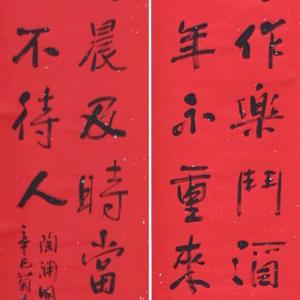 作樂鬥酒
年不重來
晨及時當
不待人
陶淵明
辛巳菊